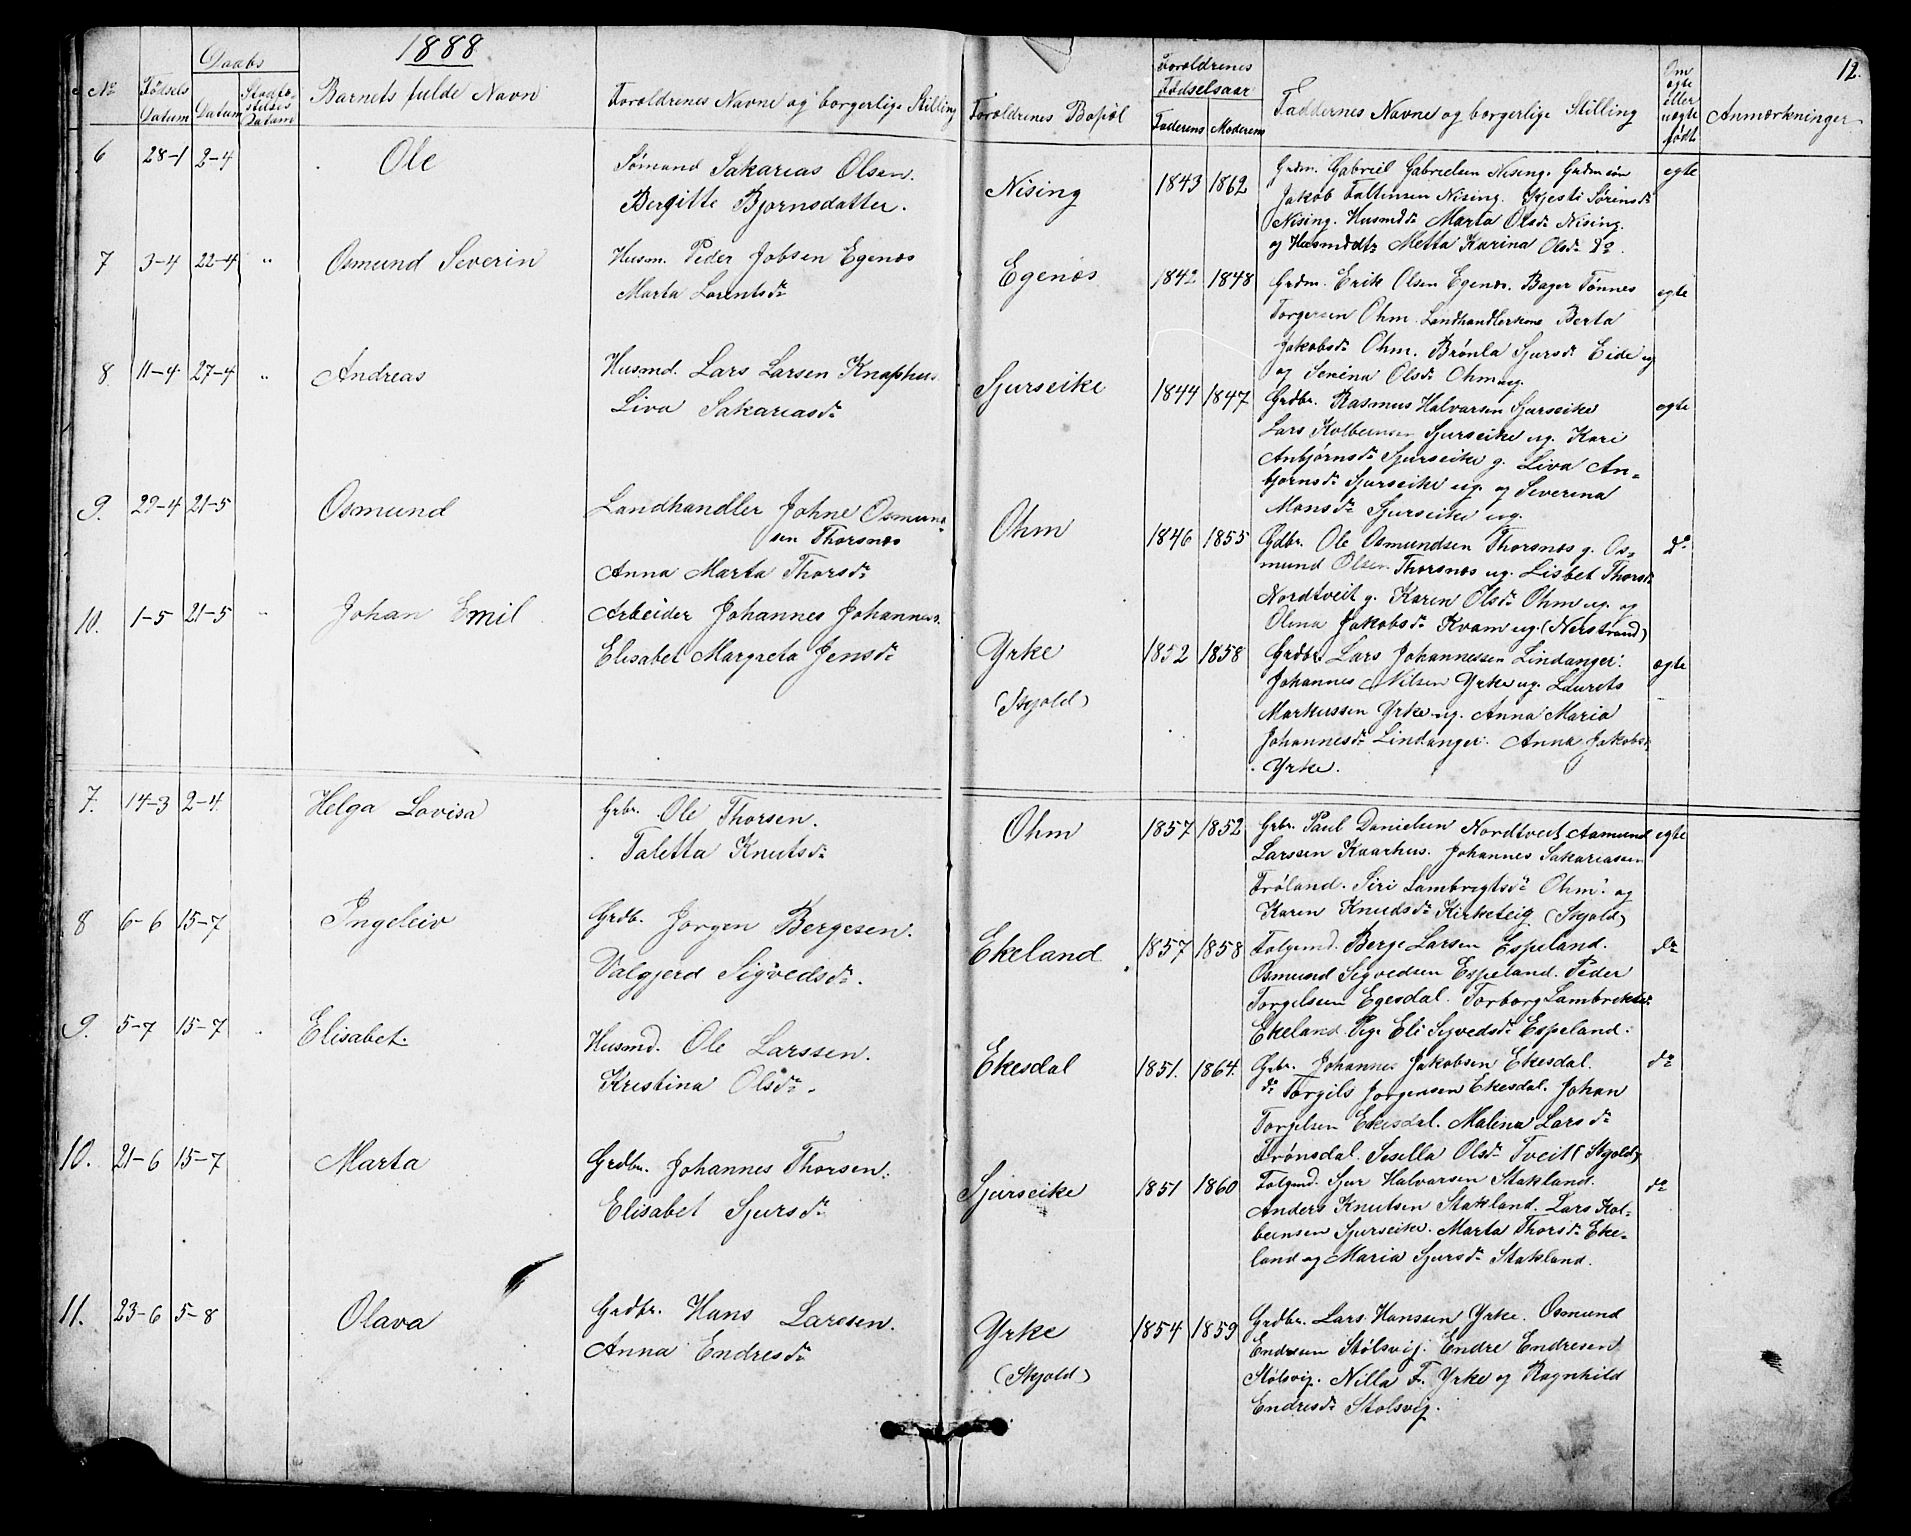 1888
12.
No
Fødsels Datum
Daabs
Datum
Stadfæstelses Datum
Barnets fulde Navn
Foroldrenes Navne og borgerlige Stilling
Foroldrenes Bopæl
Foroldrenes Fødselsaar
Faderens Moderens
Faddernes Navne og borgerlige Stilling
Om egte eller uegte født
Anmærkninger
6 28-1 2-4 Ole
Sømand Sakarias Olsen.
Bergitte Bjornsdatter.
Nising 1843 1862
Grdm. Gabriel Gabrielsen Nising.
Jakob Faltinsen Nising. Kjesti Sørensdr
Nising. Husmdsdr Marta Olsdr Nising.
og Husmddtr Metta Karina Olsdr Do.
egte
7 3-4 22-4 " Osmund Severin
Husm. Peder Jobsen Egenes
Marta Lorentsdr
Egenæs 1842 1848
Grdm. Erik Olsen Egenæs. Bager Tønnes
Torgersen Ohm. Landhandlerkone Berta
Jakobsdr Ohm. Brønla Sjursdr Eide ug
og Senina Olsdr Ohm ug.
egte
8 11-4 27-4 " Andreas
Husmd. Lars Larsen Knaphus
Liva Sakariasdr
Sjurseike 1844 1847
Grdbr. Rasmus Halvarsen Sjurseike
Lars Kolbeinsen Sjurseike ug. Kari
Anbjørnsdr Sjurseike g. Liva An-
bjornsdr Sjurseike ug. og Severina
Monsdr Sjurseike ug.
egte
9. 29-4 21-5 Osmund
Landhandler Johne Osmund-
sen Thorsnæs
Anna Marta Thorsdr
Ohm 1846 1855
Gdbr. Ole Osmundsen Thorsnæs g. Os-
mund Olsen Thorsnæs ug. Lisbet Thorsdr
Nordtveit g. Karen Olsdr Ohm ug. og
Olina Jakobsdr Kvam ug. (Nerstrand)
do
10. 1-5 21-5 " Johan Emil
Arbeider Johannes Johannes.
Elisabet Margreta Jensdr
Yrke
(Skjold)
1852 1858
Grdbr. Lars Johannessen Lindanger.
Johannes Nilsen Yrke ug. Laurits
Markussen Yrke ug. Anna Maria
Johannesdr Lindanger. Anna Jakobsdr
Yrke.
egte
7. 14-3 2-4. Helga Lovisa
Grbr. Ole Thorsen.
Taletta Knutsdr
Ohm 1857 1852
Grbr. Paul Danielsen Nordtveit Aamund
Larssen Kaarhus. Johannes Sakariassen
Frøland. Siri Lambregtsdr Ohm. og
Karen Knudsdr Kirketeig (Skjold)
egte
8 6-6 15-7 Ingeleiv
Grdb. Jorgen Bergesen.
Valgjerd Sigvedsdr.
Ekeland 1857 1858
Folgemd. Berge Larsen Espeland.
Osmund Sigvedsen Espeland. Peder
Torgelsen Egesdal. Torborg Lambrektsdr
Ekeland. Pige Eli Sigvedsdr Espeland.
do
9. 5-7 15-7 Elisabet.
Husmd. Ole Larssen.
Kristina Olsdr.
Ekesdal 1851. 1864.
Grbr. Johannes Jakobsen Ekesdal.
do Torgils Jorgensen Ekesdal. Johan
Torgelsen Ekesdal. Malena Larsdr
Frønsdal. Sesella Olsdr Tveit (Skjold)
do
10. 21-6 15-7 Marta
Grdbr. Johannes Thorsen.
Elisabet Sjursdr
Sjurseike 1851 1860
Folgmd. Sjur Halvarsen Stakland.
Anders Knutsen Stakland. Lars Kol-
beinsen Sjurseike. Marta Thorsdr Eke-
land og Maria Sjursdr Stakland.
do
11. 23-6 5-8 Olava
Grdbr. Hans Larssen.
Anna Endresdr
Yrke
(Skjold)
1854 1859
Grdbr. Lars Hanssen Yrke. Osmund
Endresen Stølsvig. Endre Endresen
Stølsvig. Nilla F. Yrke og Ragnhild
Endresdr Stolsvig.